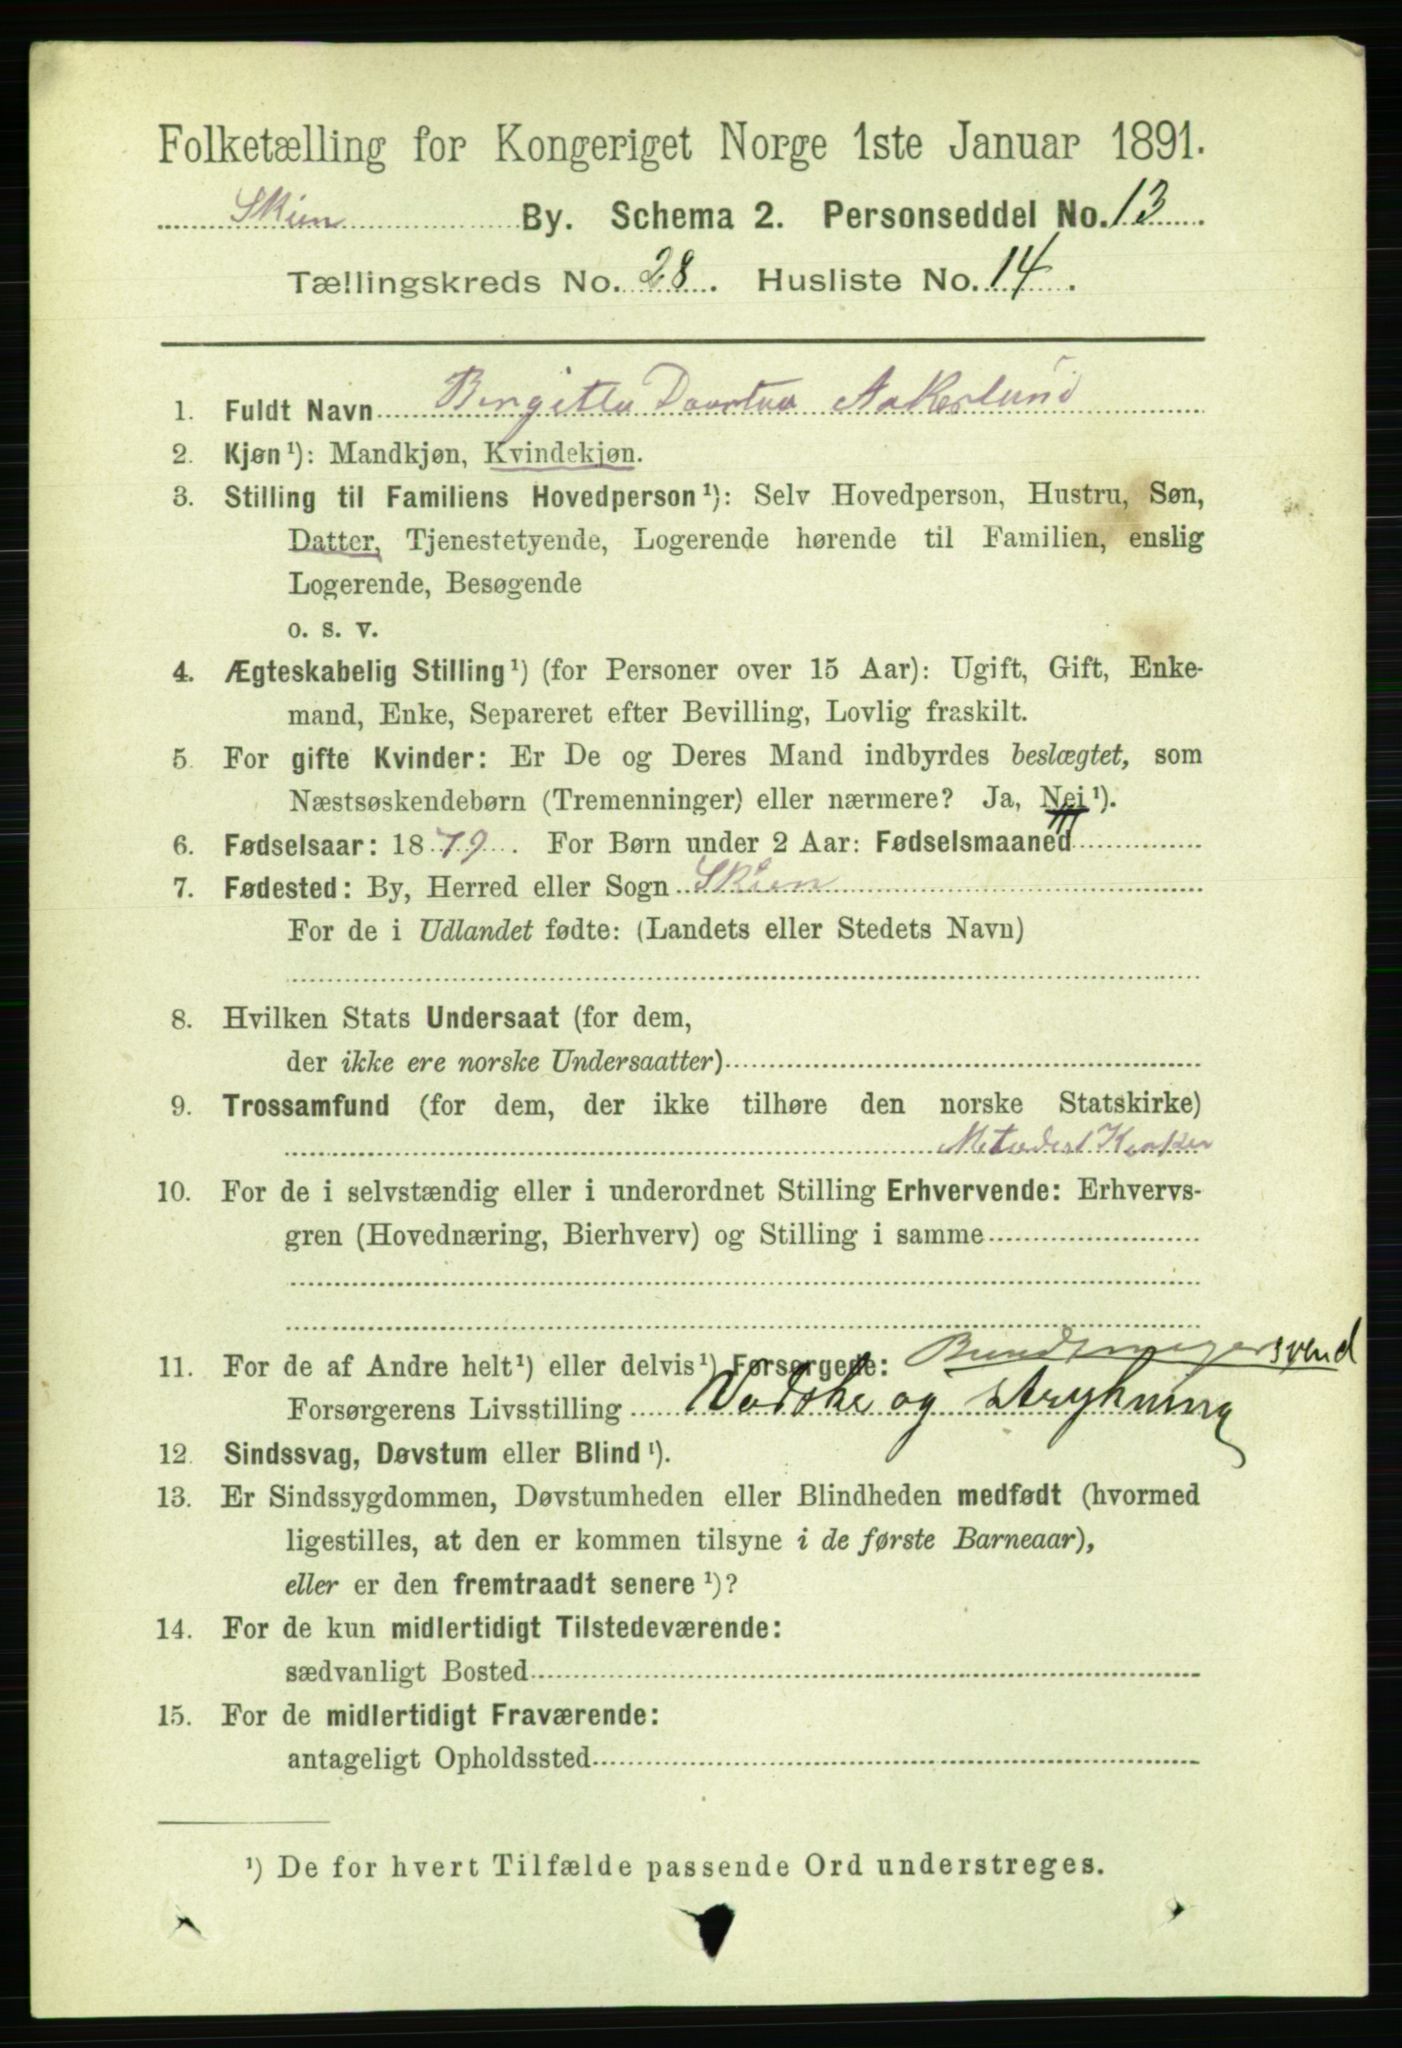 Folketælling for Kongeriget Norge 1ste Januar 1891.
Skien By. Schema 2. Personseddel No. 13
Tællingskreds No. 28. Husliste No. 14.
1. Fuldt Navn Birgitte Aakerlund
2. Kjøn ¹): Mandkjøn, Kvindekjøn.
3. Stilling til Familiens Hovedperson ¹): Selv Hovedperson, Hustru, Søn,
Datter, Tjenestetyende, Logerende hørende til Familien, enslig
Logerende, Besøgende
o. s. v.
4. Ægteskabelig Stilling ¹) (for Personer over 15 Aar): Ugift, Gift, Enke-
mand, Enke, Separeret efter Bevilling, Lovlig fraskilt.
5. For gifte Kvinder: Er De og Deres Mand indbyrdes beslægtet, som
Næstsøskendebørn (Tremenninger) eller nærmere? Ja, Nei ¹).
6. Fødselsaar: 1879. For Børn under 2 Aar: Fødselsmaaned
7. Fødested: By, Herred eller Sogn Skien
For de i Udlandet fødte: (Landets eller Stedets Navn)
8. Hvilken Stats Undersaat (for dem,
der ikke ere norske Undersaatter)
9. Trossamfund (for dem, der ikke tilhøre den norske Statskirke)
10. For de i selvstændig eller i underordnet Stilling Erhvervende: Erhvervs-
gren (Hovednæring, Bierhverv) og Stilling i samme
11. For de af Andre helt ¹) eller delvis ¹) Forsørgede: Bundtmagersvend
Forsørgerens Livsstilling Vadske og strykning
12. Sindssvag, Døvstum eller Blind ¹).
13. Er Sindssygdommen, Døvstumheden eller Blindheden medfødt (hvormed
ligestilles, at den er kommen tilsyne i de første Barneaar),
eller er den fremtraadt senere ¹)?
14. For de kun midlertidigt Tilstedeværende:
sædvanligt Bosted
15. For de midlertidigt Fraværende:
antageligt Opholdssted
¹) De for hvert Tilfælde passende Ord understreges.